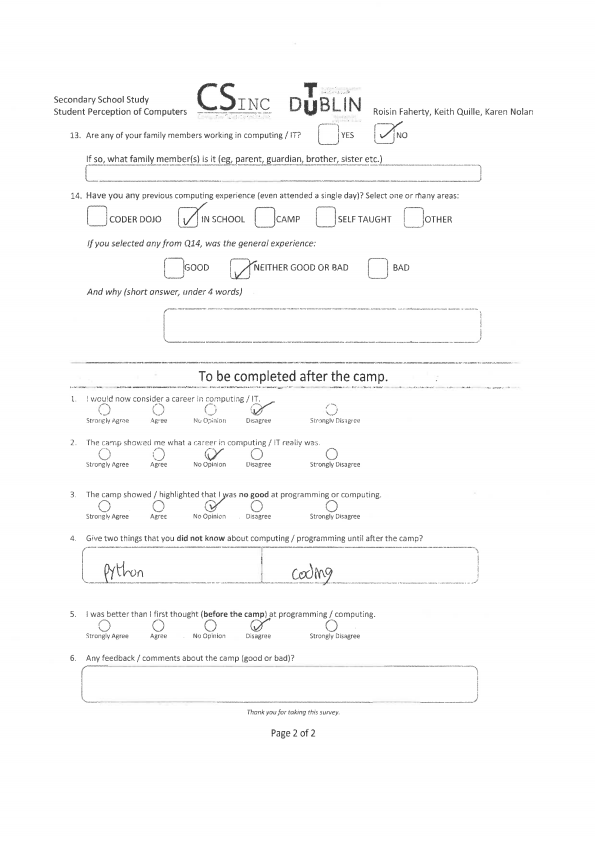 Secondary School Study
Student Perception of Computers
CSINC
DTUBLIN
Roisin Faherty, Keith Quille, Karen Nolan
13. Are any of your family members working in computing / IT? YES NO
If so, what family member(s) is it (eg, parent, guardian, brother, sister etc.)
14. Have you any previous computing experience (even attended a single day)? Select one or many areas:
CODER DOJO IN SCHOOL CAMP SELF TAUGHT OTHER
If you selected any from Q14, was the general experience:
GOOD NEITHER GOOD OR BAD BAD
And why (short answer, under 4 words)
To be completed after the camp.
1. I would now consider a career in computing / IT.
Strongly Agree Agree No Opinion Disagree Strongly Disagree
2. The camp showed me what a career in computing / IT really was.
Strongly Agree Agree No Opinion Disagree Strongly Disagree
3. The camp showed / highlighted that I was no good at programming or computing.
Strongly Agree Agree No Opinion Disagree Strongly Disagree
4. Give two things that you did not know about computing / programming until after the camp?
Python coding
5. I was better than I first thought (before the camp) at programming / computing.
Strongly Agree Agree No Opinion Disagree Strongly Disagree
6. Any feedback / comments about the camp (good or bad)?
Thank you for taking this survey.
Page 2 of 2